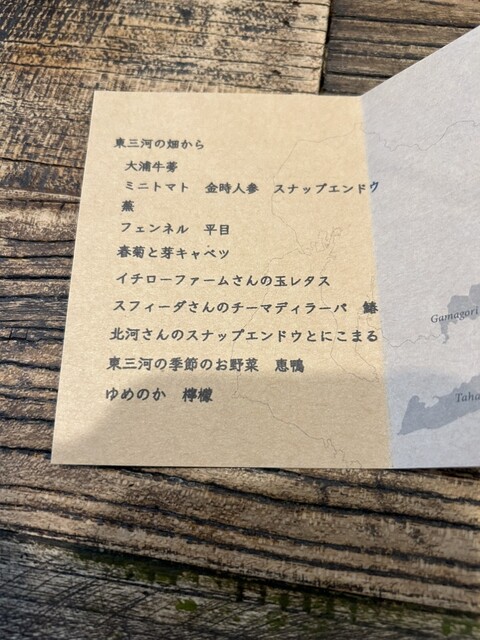 東三河の畑から
大浦牛蒡
ミニトマト　金時人参　スナップエンドウ
蕪
フェンネル　平目
春菊と芽キャベツ
イチローファームさんの玉レタス
スフィーダさんのチーマディラーパ　鰆
北河さんのスナップエンドウとにこまる
東三河の季節のお野菜　恵鴨
ゆめのか　檸檬
Gamagori
Taha